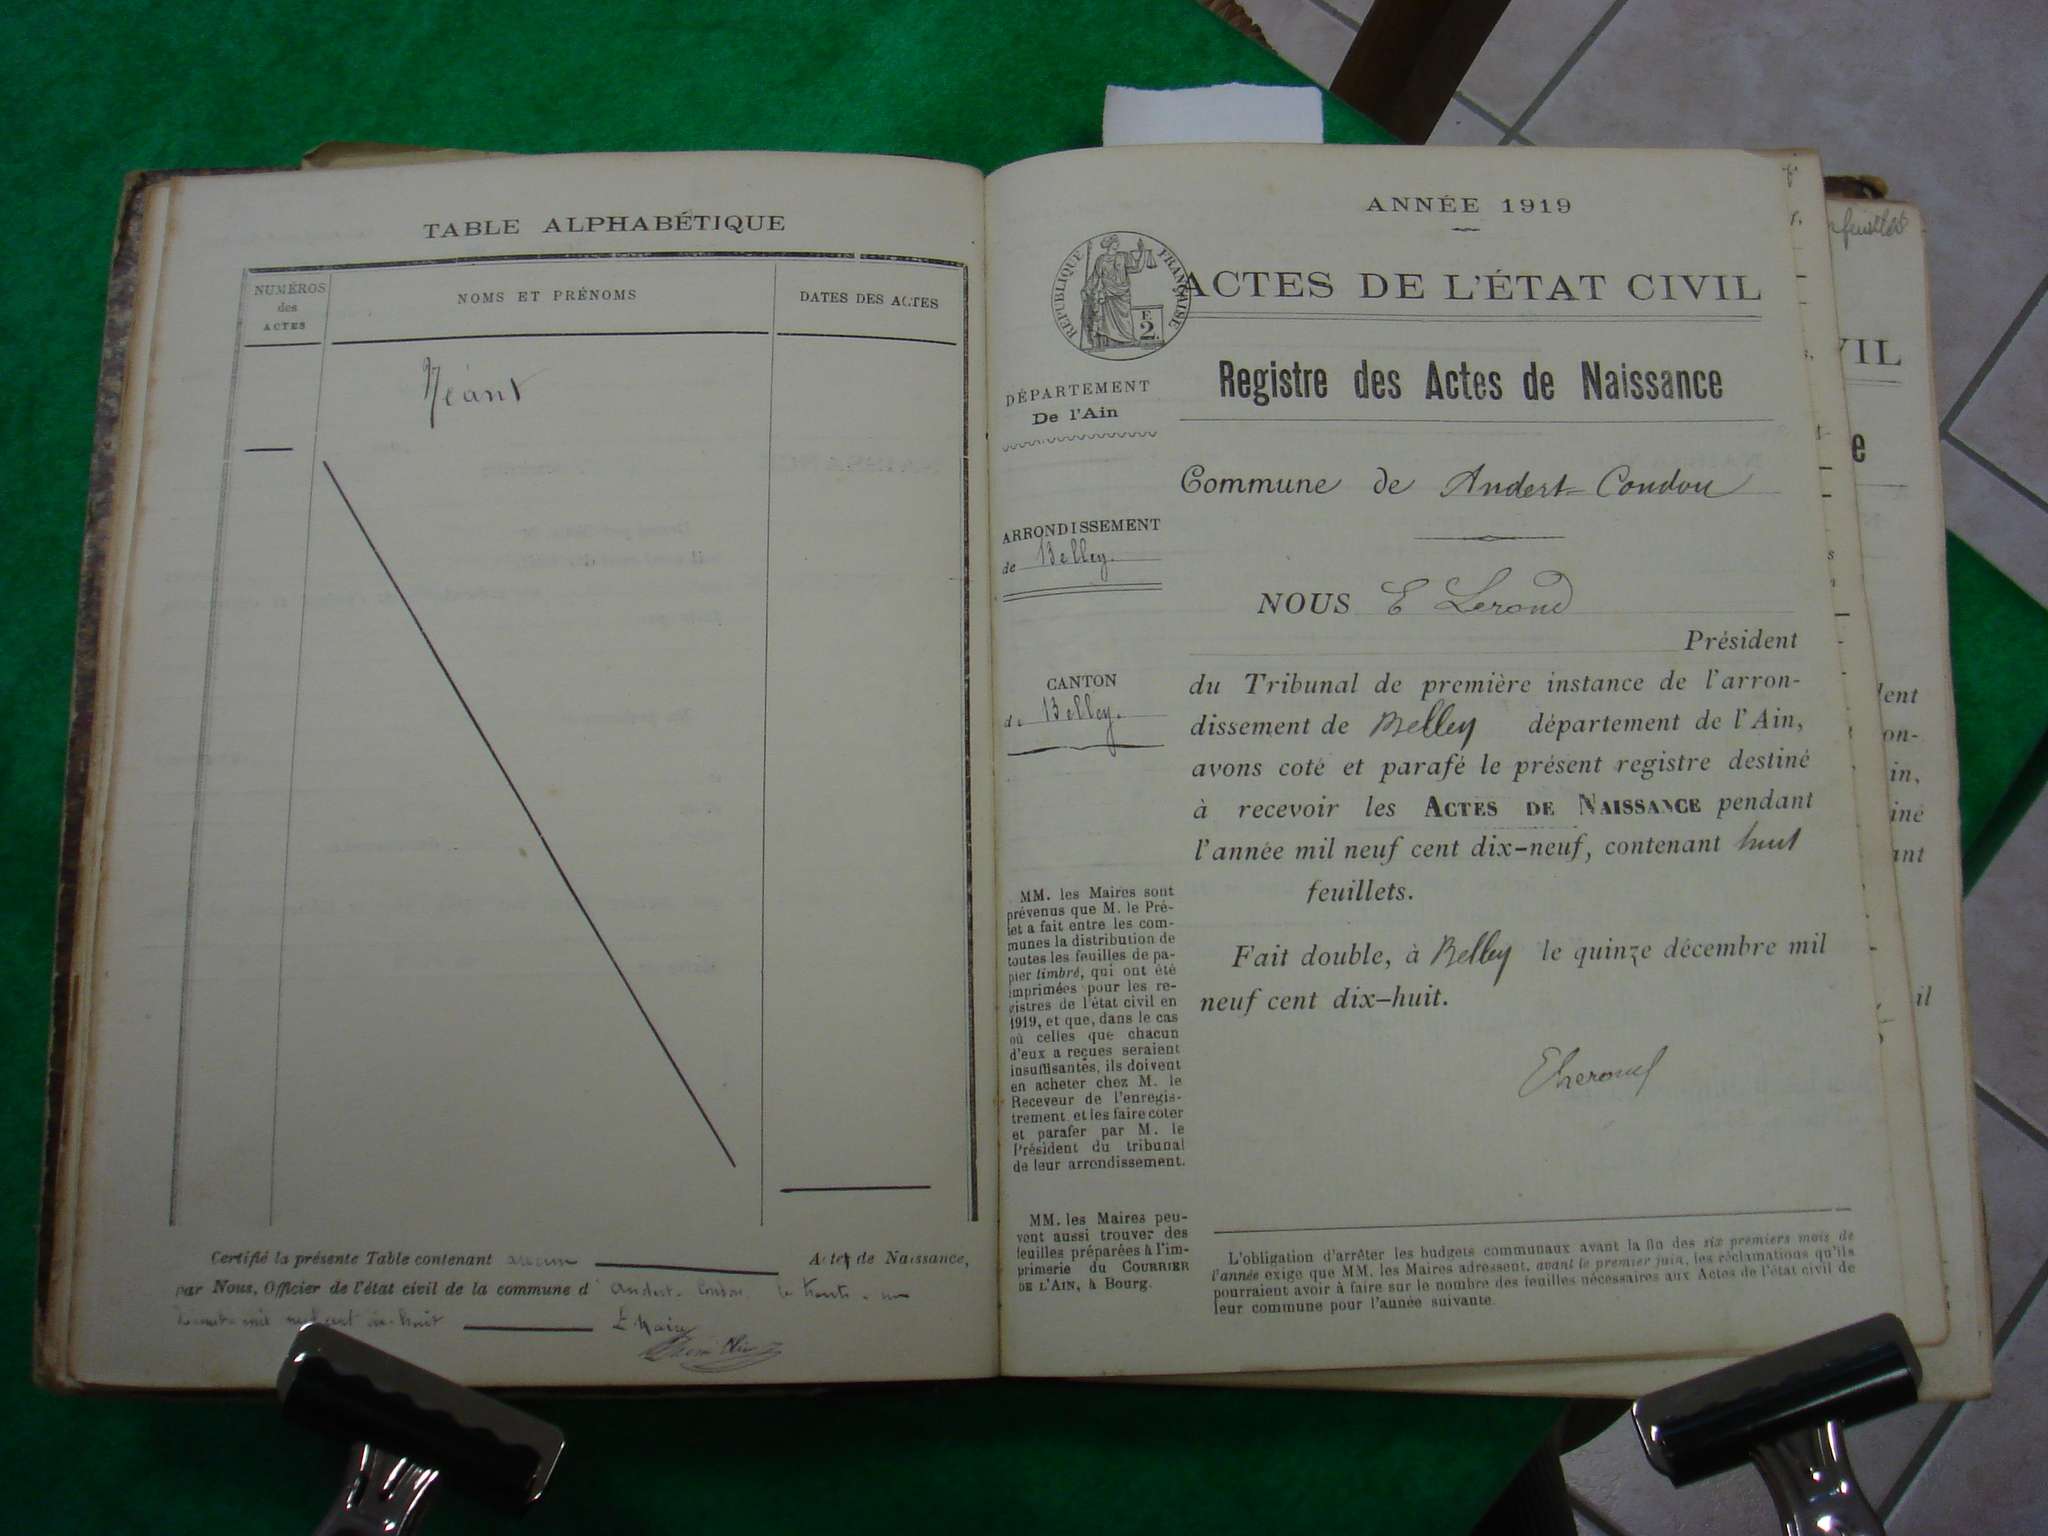 TABLE ALPHABÉTIQUE
NUMÉROS
des
ACTES
NOMS ET PRÉNOMS
DATES DES ACTES
Néant
Certifié la présente Table contenant aucun Actes de Naissance,
par Nous, Officier de l'état civil de la commune d' Andert-Condon le trente-un
mil neuf cent dix-huit
ANNÉE 1919
RÉPUBLIQUE FRANÇAISE
E
2
ACTES DE L'ÉTAT CIVIL
Registre des Actes de Naissance
DÉPARTEMENT
De l'Ain
Commune de Andert-Condon
ARRONDISSEMENT
de Belley.
NOUS E Lerond
Président
CANTON
de Belley.
du Tribunal de première instance de l'arron-
dissement de Belley département de l'Ain,
avons coté et parafé le présent registre destiné
à recevoir les ACTES DE NAISSANCE pendant
l'année mil neuf cent dix-neuf, contenant huit
feuillets.
Fait double, à Belley le quinze décembre mil
neuf cent dix-huit.
ELerond
MM. les Maires sont
prévenus que M. le Pré-
fet a fait entre les com-
munes la distribution de
toutes les feuilles de pa-
pier timbré, qui ont été
imprimées pour les re-
gistres de l'état civil en
1919, et que, dans le cas
où celles que chacun
d'eux a reçues seraient
insuffisantes, ils doivent
en acheter chez M. le
Receveur de l'enregis-
trement et les faire coter
et parafer par M. le
Président du tribunal
de leur arrondissement.
MM. les Maires peu-
vent aussi trouver des
feuilles préparées à l'im-
primerie du COURRIER
DE L'AIN, à Bourg.
L'obligation d'arrêter les budgets communaux avant la fin des six premiers mois de
l'année exige que MM. les Maires adressent, avant le premier juin, les réclamations qu'ils
pourraient avoir à faire sur le nombre des feuilles nécessaires aux Actes de l'état civil de
leur commune pour l'année suivante.
feuillets
VIL
e
dent
on-
in,
iné
ant
il